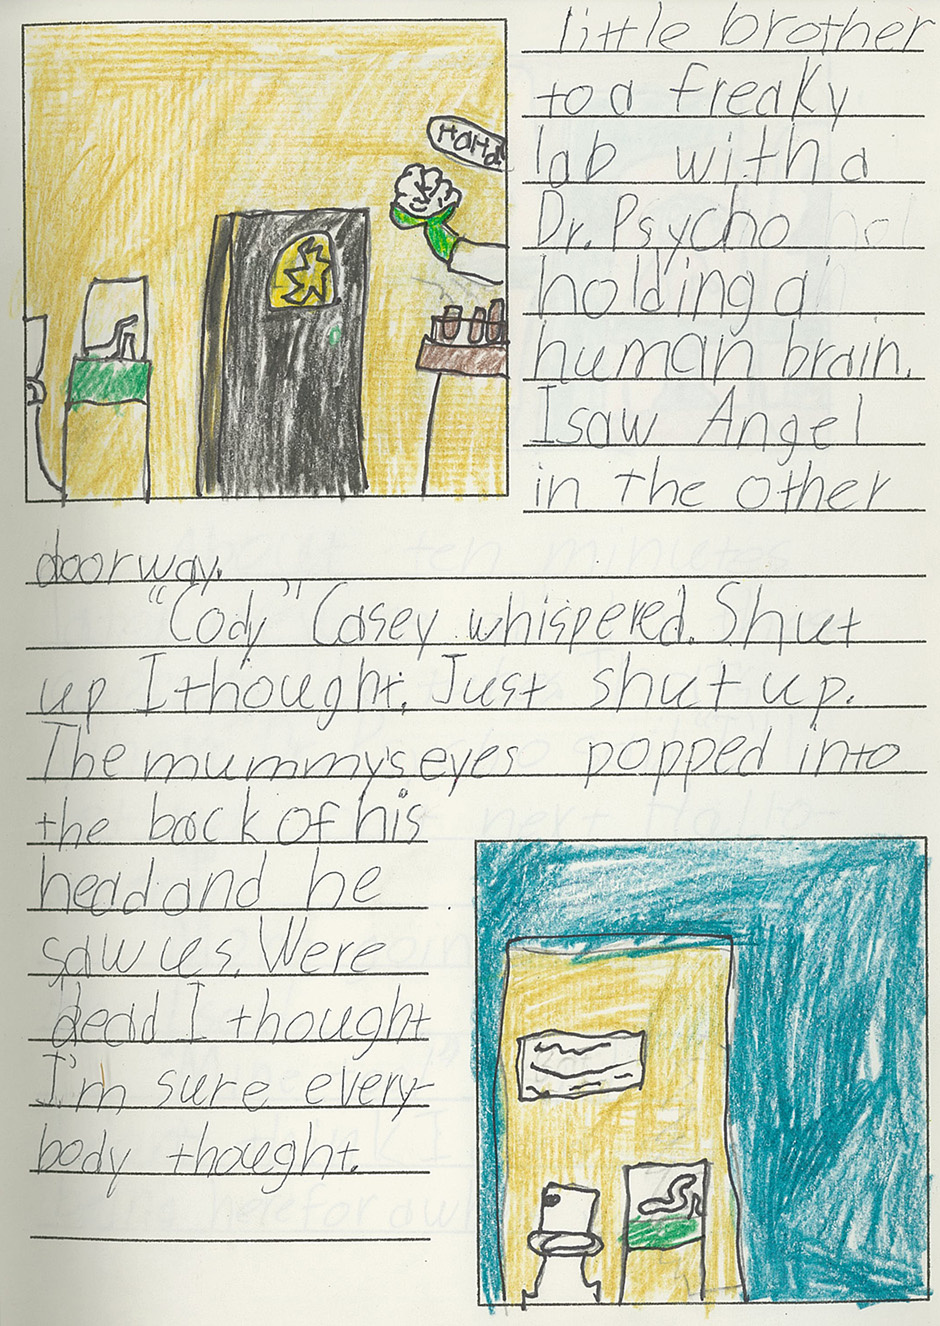 HaHa!
little brother
to a freaky
lab with a
Dr. Psycho
holding a
human brain.
I saw Angel
in the other
doorway.
"Cody" Casey whispered. Shut
up I thought. Just shut up.
The mummy's eyes popped into
the back of his
head and he
saw us. Were
dead I thought
I'm sure every-
body thought.